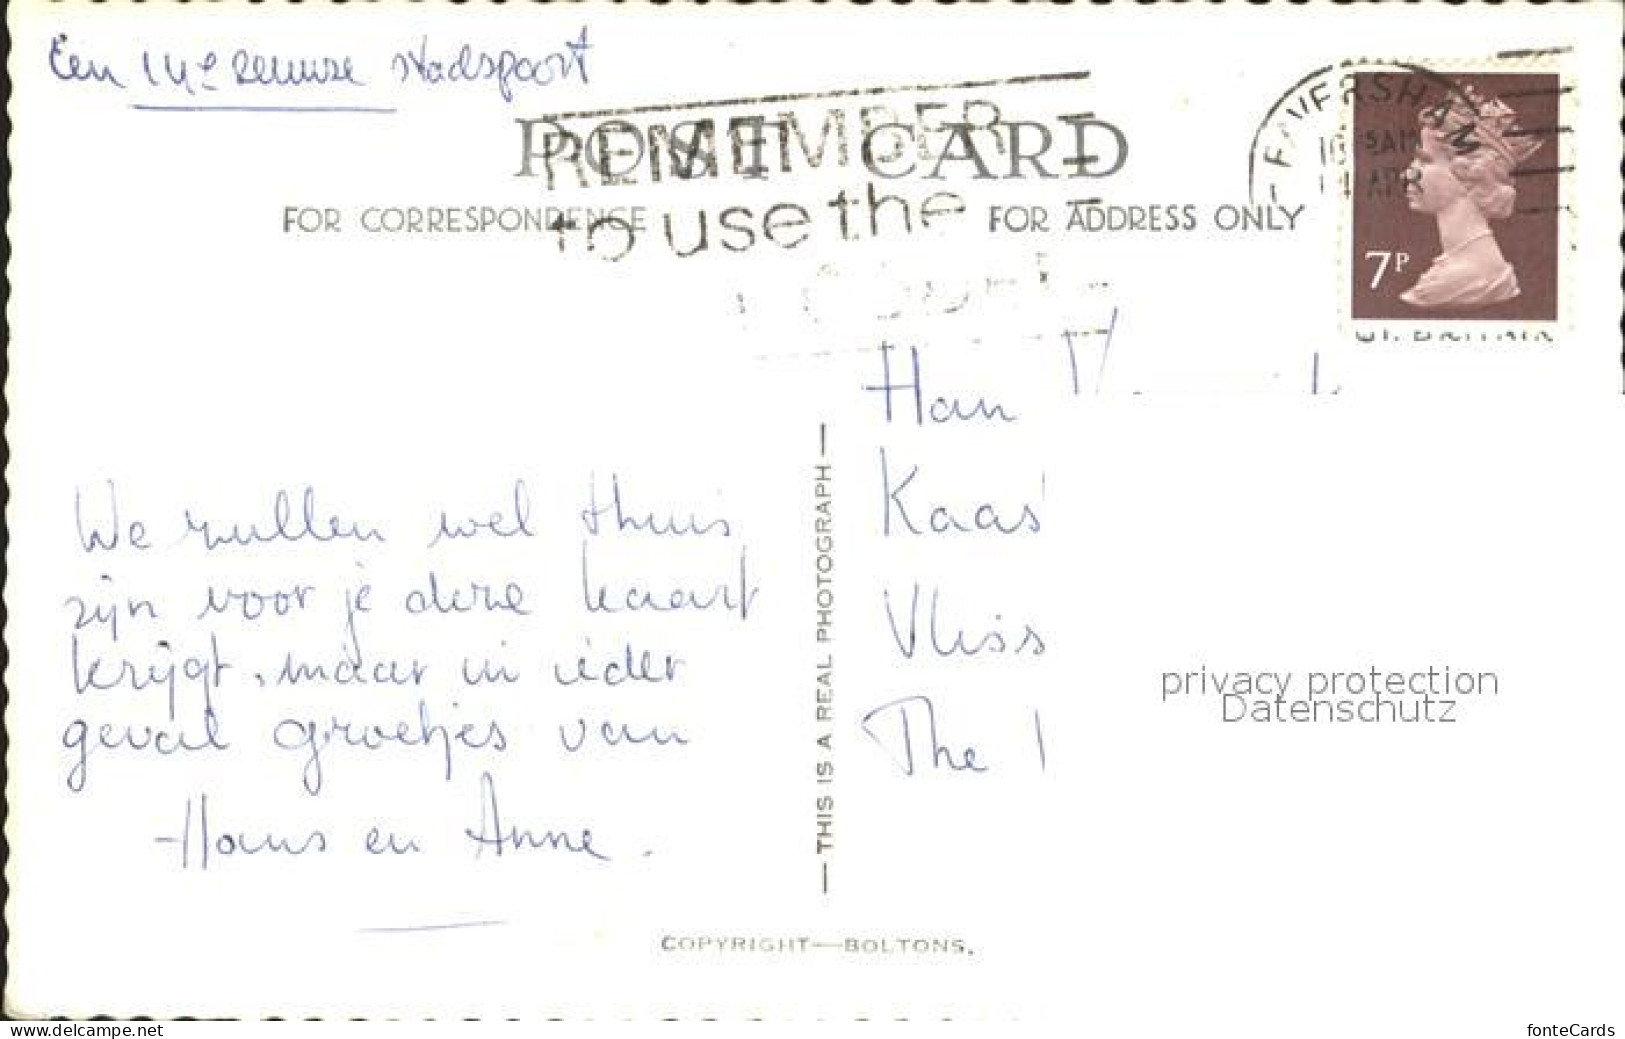 Een 14e eeuwse stadspoort
REMEMBER
POST CARD
to use the
FOR CORRESPONDENCE
FOR ADDRESS ONLY
FAVERSHAM
APR
7P
Han
Kaas
Vliss
The
We zullen wel thuis
zijn voor je deze kaart
krijgt, maar in ieder
geval groetjes van
Hans en Anne.
— THIS IS A REAL PHOTOGRAPH —
privacy protection
Datenschutz
COPYRIGHT—BOLTONS.
www.delcampe.net
fonteCards